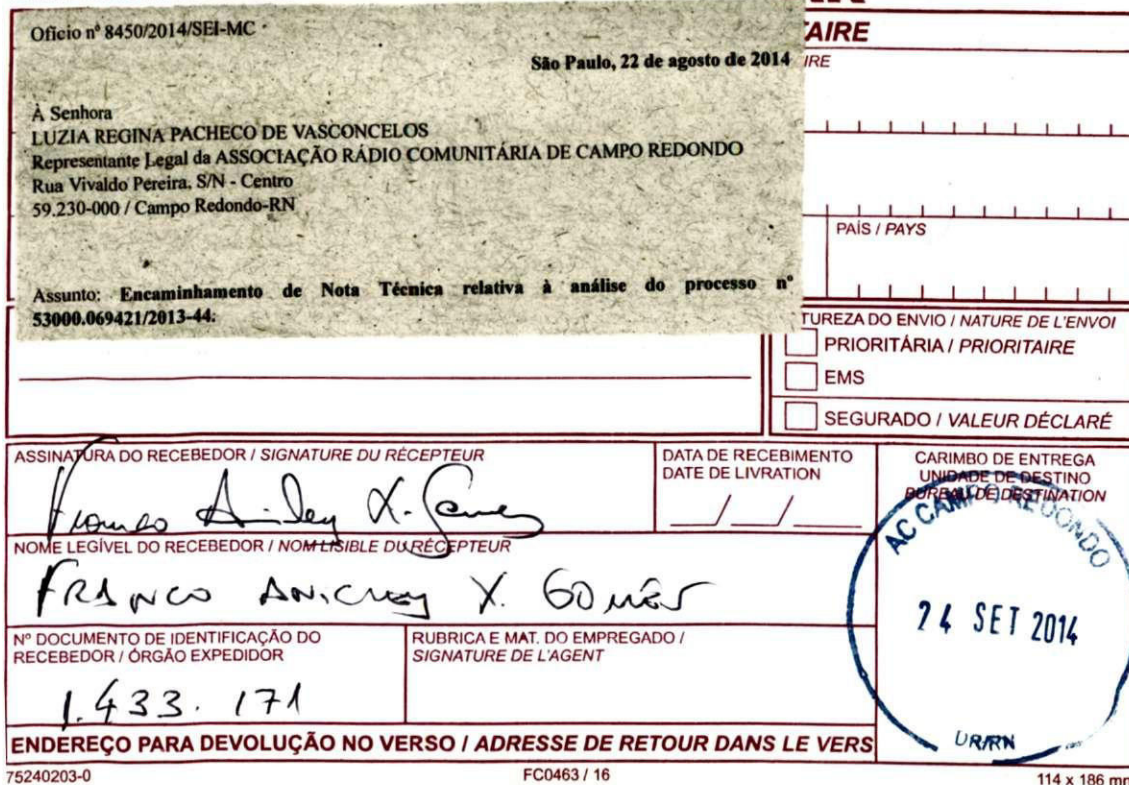 Ofício nº 8450/2014/SEI-MC
São Paulo, 22 de agosto de 2014
À Senhora
LUZIA REGINA PACHECO DE VASCONCELOS
Representante Legal da ASSOCIAÇÃO RÁDIO COMUNITÁRIA DE CAMPO REDONDO
Rua Vivaldo Pereira, S/N - Centro
59.230-000 / Campo Redondo-RN
Assunto: Encaminhamento de Nota Técnica relativa à análise do processo nº
53000.069421/2013-44.
AIRE
IRE
PAÍS / PAYS
TUREZA DO ENVIO / NATURE DE L'ENVOI
PRIORITÁRIA / PRIORITAIRE
EMS
SEGURADO / VALEUR DÉCLARÉ
ASSINATURA DO RECEBEDOR / SIGNATURE DU RÉCEPTEUR
DATA DE RECEBIMENTO
DATE DE LIVRATION
/ /
CARIMBO DE ENTREGA
UNIDADE DE DESTINO
BUREAU DE DESTINATION
AC CAMPO REDONDO
24 SET 2014
UR/RN
NOME LEGÍVEL DO RECEBEDOR / NOM LISIBLE DU RÉCEPTEUR
FRANCO X. GOMES
Nº DOCUMENTO DE IDENTIFICAÇÃO DO
RECEBEDOR / ÓRGÃO EXPEDIDOR
1.433.171
RUBRICA E MAT. DO EMPREGADO /
SIGNATURE DE L'AGENT
ENDEREÇO PARA DEVOLUÇÃO NO VERSO / ADRESSE DE RETOUR DANS LE VERS
75240203-0
FC0463 / 16
114 x 186 mm